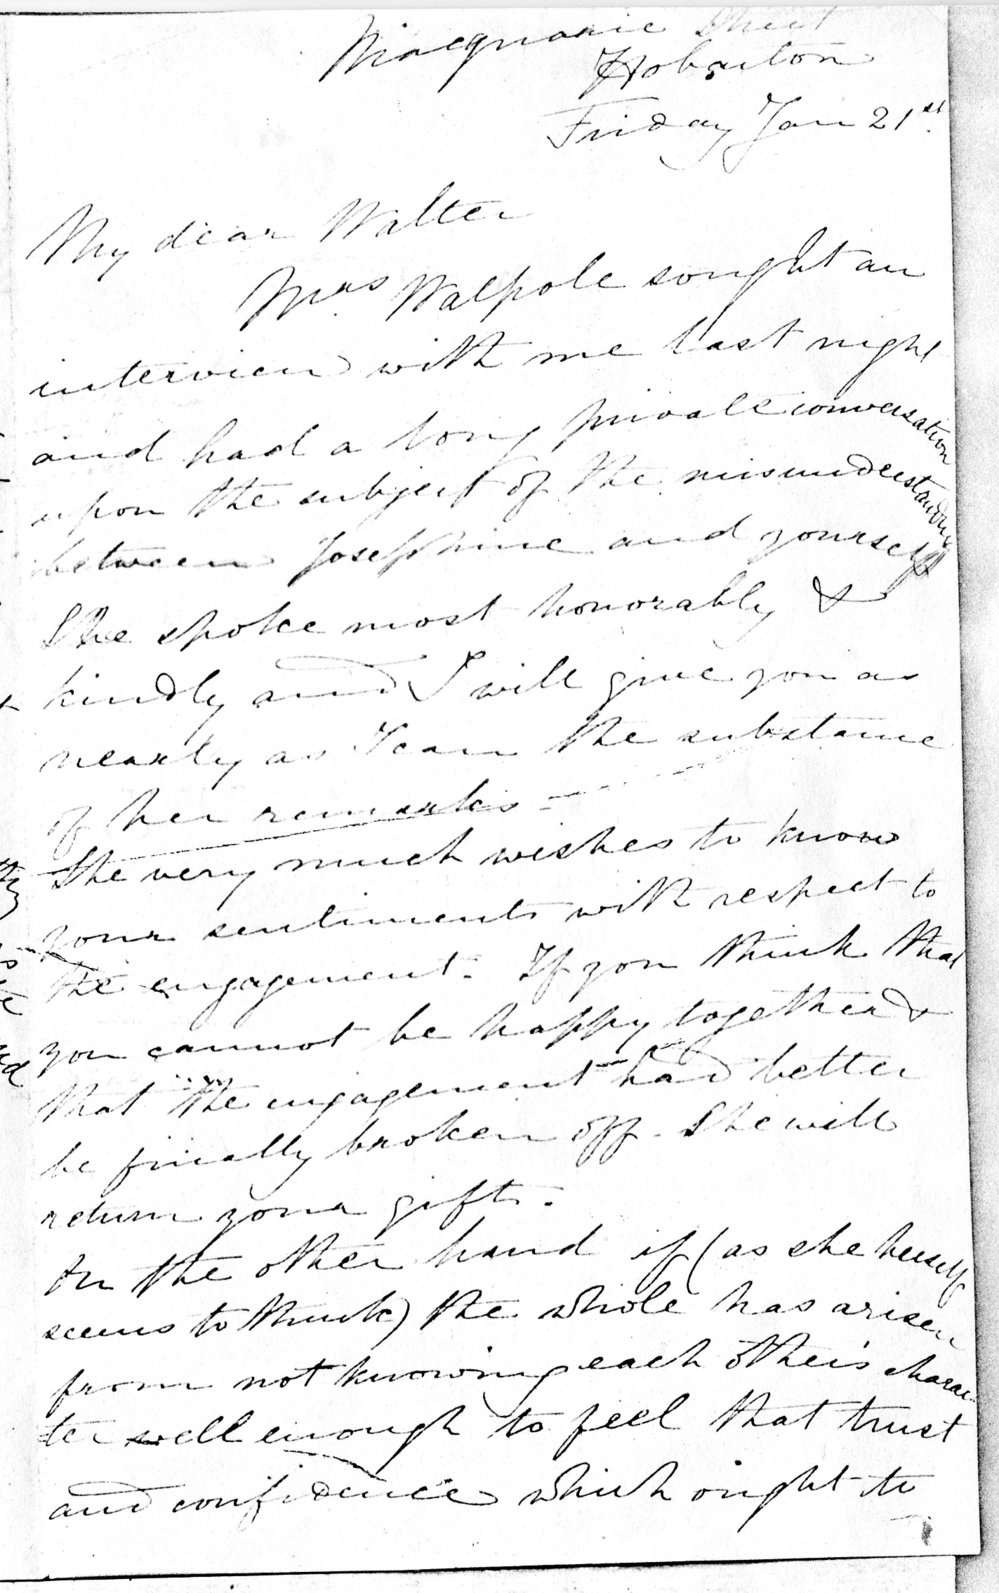 Macquarie Street
Hobarton
Friday Jan 21st.
My dear Walter
Mrs. Walpole sought an
interview with me last night
and had a long private conversation
upon the subject of the misunderstanding
between Josephine and yourself
She spoke most honorably &
kindly and I will give you as
nearly as I can the substance
of her remarks -
She very much wishes to know
your sentiments with respect to
the engagement. If you think that
you cannot be happy together &
that the engagement had better
be finally broken off. She will
return your gifts.
On the other hand if (as she herself
seems to think) the whole has arisen
from not knowing each other's charac-
ter well enough to feel that trust
and confidence which ought to